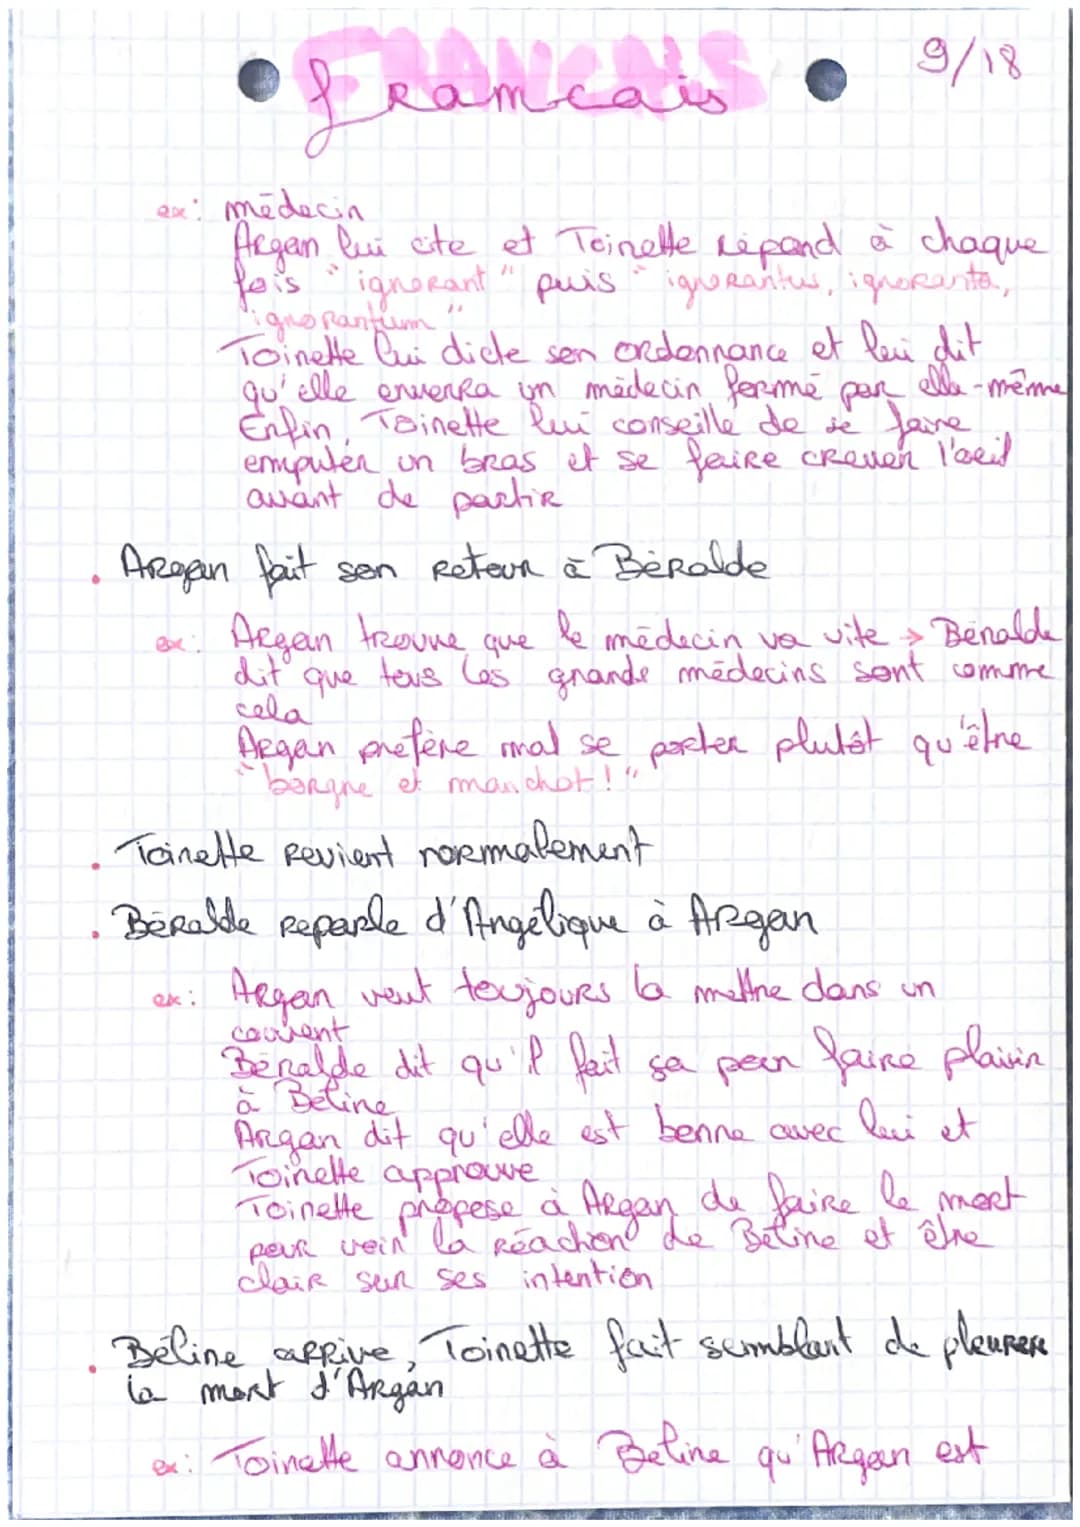 FRANCAIS
francais
9/18
ex: médecin
Argan lui cite et Toinette répond à chaque
fois "ignorant" puis "ignorantus, ignoranta,
ignorantum"
Toinette lui dicte son ordonnance et lui dit
qu'elle enverra un médecin formé par elle-même
Enfin, Toinette lui conseille de se faire
emputer un bras et se faire crever l'oeil
avant de partir
. Argan fait son retour à Béralde
ex: Argan trouve que le médecin va vite → Béralde
dit que tous les grands médecins sont comme
cela
Argan préfère mal se porter plutôt qu'être
"borgne et manchot!"
. Toinette revient normalement
. Béralde reparle d'Angélique à Argan
ex: Argan veut toujours la mettre dans un
couvent
Béralde dit qu'il fait sa pour faire plaisir
à Béline
Argan dit qu'elle est bonne avec lui et
Toinette approuve
Toinette propose à Argan de faire le mort
pour voir la réaction de Béline et être
clair sur ses intention
. Béline arrive, Toinette fait semblant de pleurer
la mort d'Argan
ex: Toinette annonce à Béline qu'Argan est